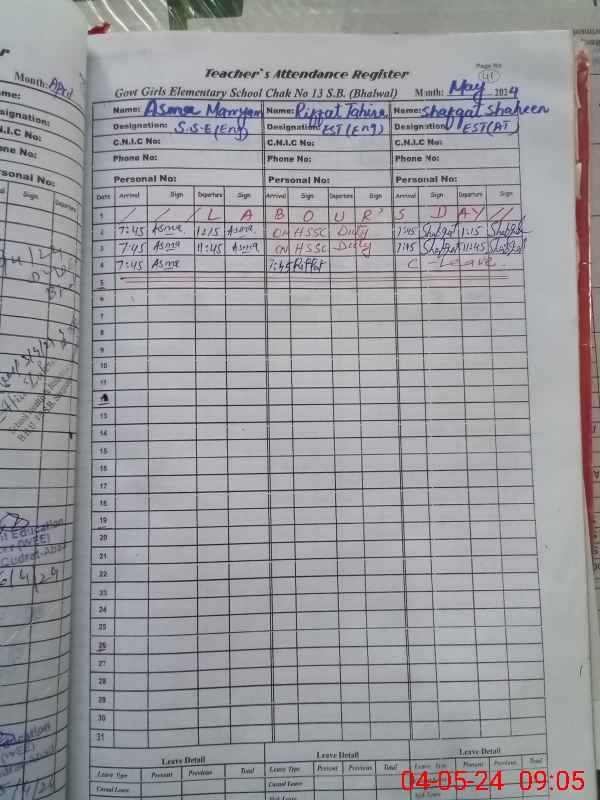 Month: April
Teacher`s Attendance Register
Page No 41
Govt Girls Elementary School Chak No 13 S.B. (Bhalwal) Month: May 2024
Name: Asma Marryam Name: Riffat Tahira Name: Shafqat Shaheen
Designation: S.S.E(Eng) Designation: EST(Eng) Designation: EST(AT)
C.N.I.C No: C.N.I.C No: C.N.I.C No:
Phone No: Phone No: Phone No:
Personal No: Personal No: Personal No:
Date Arrival Sign Departure Sign Arrival Sign Departure Sign Arrival Sign Departure Sign
1 / / / L A B O U R' S D A Y //
2 7:45 Asma 12:15 Asma ON HSSC Duty 7:45 Shafqat 12:15 Shafqat
3 7:45 Asma 11:45 Asma ON HSSC Duty 7:45 Shafqat 11:45 Shafqat
4 7:45 Asma 7:45 Riffat C - Leave
5
6
7
8
9
10
11
13
14
15
15
16
17
18
19
20
21
22
23
24
25
26
27
28
29
30
31
Leave Detail Leave Detail Leave Detail
Leave Type Present Previous Total Leave Type Present Previous Total Leave Type Present Previous Total
Casual Leave Casual Leave
04-05-24 09:05